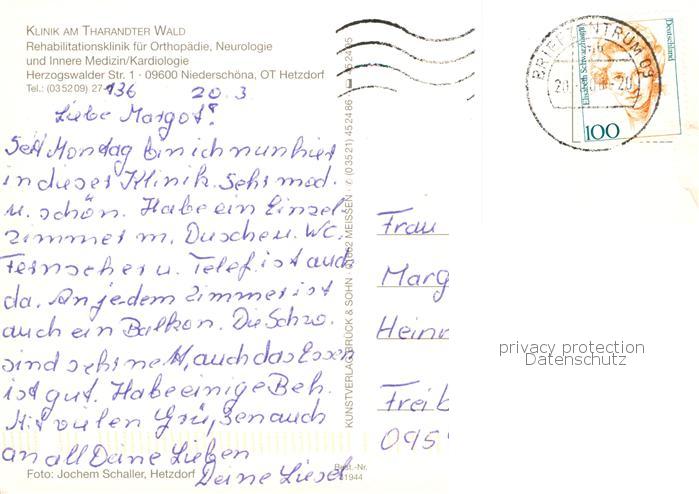 KLINIK AM THARANDTER WALD
Rehabilitationsklinik für Orthopädie, Neurologie
und Innere Medizin/Kardiologie
Herzogswalder Str. 1 · 09600 Niederschöna, OT Hetzdorf
Tel.: (035209) 27-
136 20.3.
Liebe Margot!
Seit Montag bin ich nun hier
in dieser Klinik. Sehr mod.
u. schön. Habe ein Einzel
zimmer m. Dusche u. WC.
Fernseher u. Telef. ist auch
da. An jedem Zimmer ist
auch ein Balkon. Die Schw.
sind sehr nett, auch das Essen
ist gut. Habe einige Beh.
Mit vielen Grüßen auch
an all Deine Lieben
Deine Liesel
Foto: Jochem Schaller, Hetzdorf
Best.-Nr.
KUNSTVERLAG BRÜCK & SOHN · 01662 MEISSEN · (03521) 452486
Frau
Marg
Heinr
Freib
095
BRIEFZENTRUM 09
Elisabeth Schwarzhaupt
Deutschland
100
privacy protection
Datenschutz